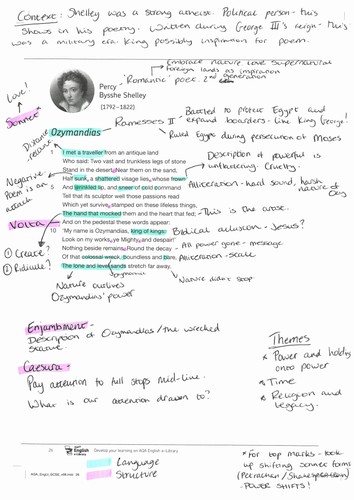 Context: Shelley was a strong atheist. Political person - this
shows in his poetry. Written during George III's reign - this
was a military era king possibly inspiration for poem.
Embrace nature, love, supernatural
foreign lands as inspiration
'Romantic' poet. 2nd generation
Love!
Sonnet
Percy
Bysshe Shelley
(1792–1822)
Ramesses II - Battled to protect Egypt and
expand boarders - like King George!
Ruled Egypt during persecution of Moses
Ozymandias
1 I met a traveller from an antique land
Who said: Two vast and trunkless legs of stone
Stand in the desert. Near them on the sand,
Half sunk, a shattered visage lies, whose frown
5 And wrinkled lip, and sneer of cold command
Tell that its sculptor well those passions read
Which yet survive, stamped on these lifeless things,
The hand that mocked them and the heart that fed;
And on the pedestal these words appear:
10 'My name is Ozymandias, king of kings:
Look on my works, ye Mighty, and despair!'
Nothing beside remains. Round the decay
Of that colossal wreck, boundless and bare,
The lone and level sands stretch far away.
Negative
Poem is an
attack
Description of powerful is
unflattering. Cruelty.
Alliteration - hard sound, harsh
nature of Ozy
This is the cause.
Volta
Biblical allusion - Jesus?
All power gone - message
Alliteration - scale
① Create?
② Ridicule?
Nature outlives
Ozymandias' power
Nature didn't stop.
Enjambment -
Description of Ozymandias / the wrecked
statue.
Caesura -
Pay attention to full stops mid-line.
What is our attention drawn to?
Themes
* Power and holding
onto power
* Time
* Religion and
legacy.
English
Develop your learning on AQA English e-Library
Language
Structure
* For top marks - look
up shifting sonnet forms
POWER SHIFTS!